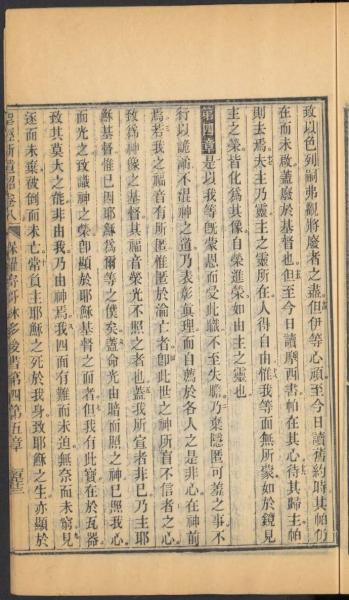 致以色列嗣弗觀將廢者之盡但伊等心頑至今日讀舊約時其帕仍
在而未啟蓋廢於基督也但至今日讀摩西書帕在其心待其歸主帕
則去焉夫主乃靈主之靈所在人得自由惟我等面無所蒙如於鏡見
主之榮皆化為其像自榮進榮如由主之靈也
第四章是以我等既蒙恩而受此職不至失膽乃棄隱匿可羞之事不
行以詭譎不混神之道乃表彰真理而自薦於各人之是非心在神前
焉若我之福音有所匿惟匿於淪亡者卽此世之神所盲不信者之心
致為神像之基督其福音榮光不照之者也蓋我所宣者非己乃主耶
穌基督惟已因耶穌為爾等之僕矣蓋命光由暗而照之神已照我心
而光之致識神之榮卽顯於耶穌基督之面者但我有此寶在於瓦器
致其莫大之能非由我乃由神焉我四面有難而未迫無奈而未窮見
逐而未棄被倒而未亡常負主耶穌之死於我身致耶穌之生亦顯於
聖經新遺詔卷八 保羅寄哥林多後書第四第五章